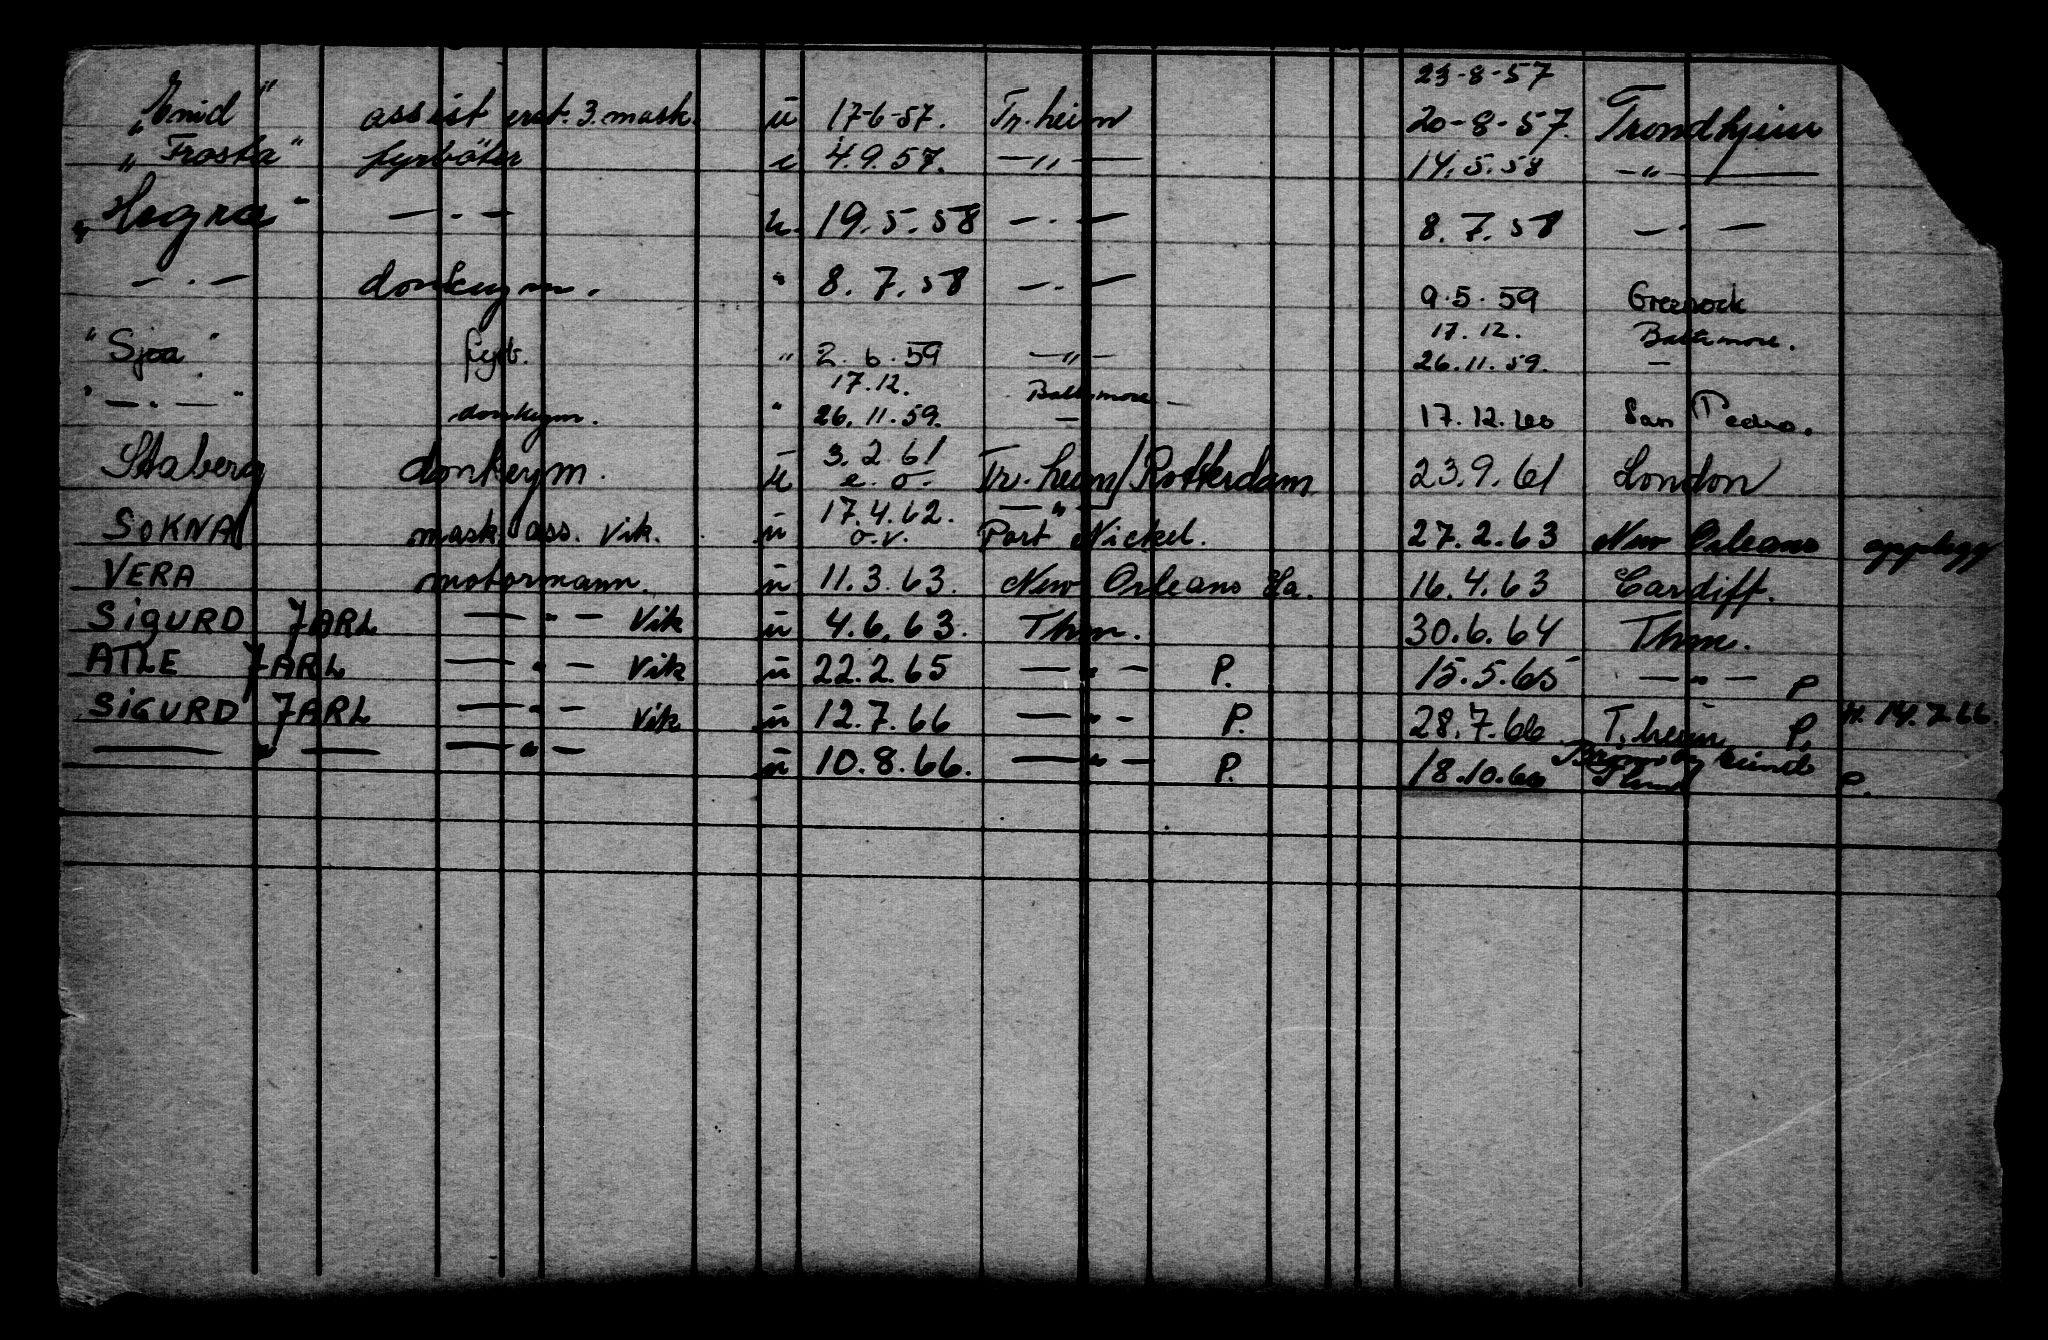 23-8-57
„Enid" assist erst. 3. mask. u 17-6-57. Tr.heim 20-8-57. Trondhjem
„Frosta" fyrbøter u 4.9.57. —"— 14.5.58 —"—
„Hegra" —.— u. 19.5.58 —.— 8.7.58 —.—
—.— donkeym. " 8.7.58 —.— 9.5.59 Greenock
17.12. Baltimore.
"Sjoa" fyrb. " 2.6.59 —"— 26.11.59. —
17.12. Baltimore
"—.—" donkeym. " 26.11.59. — 17.12.60 San Pedro.
3.2.61
Staberg donkeym. u e.o. Tr.heim/Rotterdam 23.9.61 London
17.4.62. —"—
SOKNA mask. ass. Vik. u o.v. Port Nickel. 27.2.63 New Orleans opplegg
VERA motormann. u 11.3.63. New Orleans La. 16.4.63 Cardiff.
SIGURD JARL —"— Vik u 4.6.63. Thm. 30.6.64 Thm.
ATLE JARL —"— Vik u 22.2.65 —"— P. 15.5.65 —"— P
SIGURD JARL —"— Vik u 12.7.66 —"— P. 28.7.66 T.heim P. 14.7.66.
—"— —"— u 10.8.66. —"— P. 18.10.66 P.